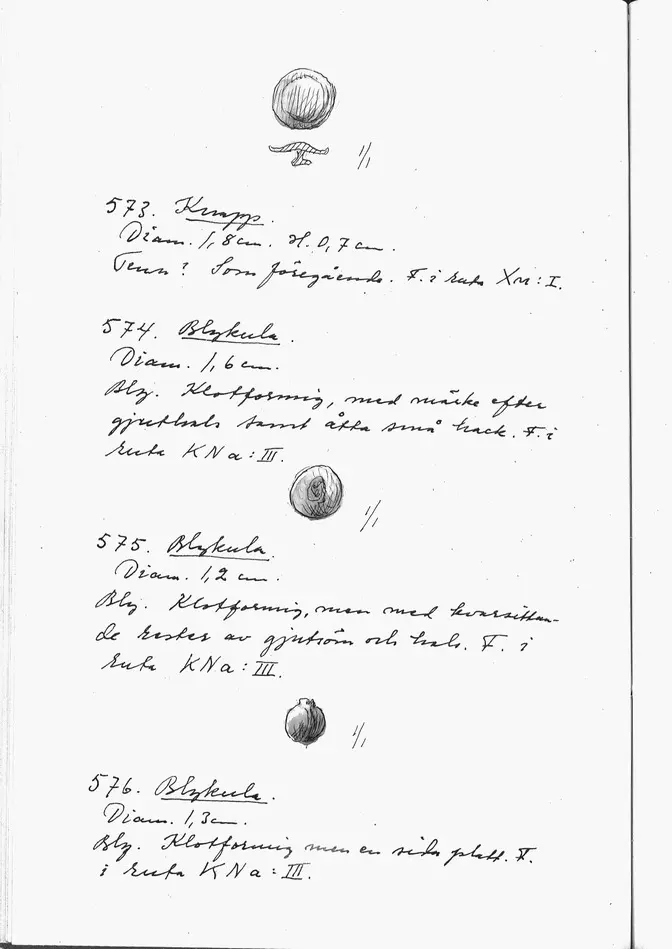 1/1
573. Knapp.
Diam. 1,8 cm. H. 0,7 cm.
Tenn? Som föregående. F. i ruta XM:I.
574. Blykula.
Diam. 1,6 cm.
Bly. Klotformig, med märke efter
gjuthals samt åtta små hack. F. i
ruta KNa:III.
1/1
575. Blykula.
Diam. 1,2 cm.
Bly. Klotformig, men med kvarsittan-
de rester av gjutsöm och hals. F. i
ruta KNa:III.
1/1
576. Blykula.
Diam. 1,3 cm.
Bly. Klotformig men en sida platt. F.
i ruta KNa:III.